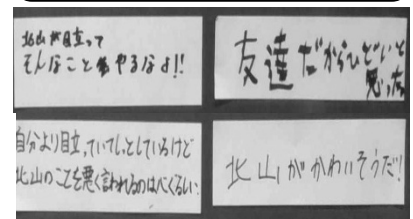 北山が目立って
そんなことやるなよ!!
友達だからひどいと
思った
自分より目立っていてしっとしているけど
北山のことを悪く言われるのはべくるしい
北山がかわいそうだ!